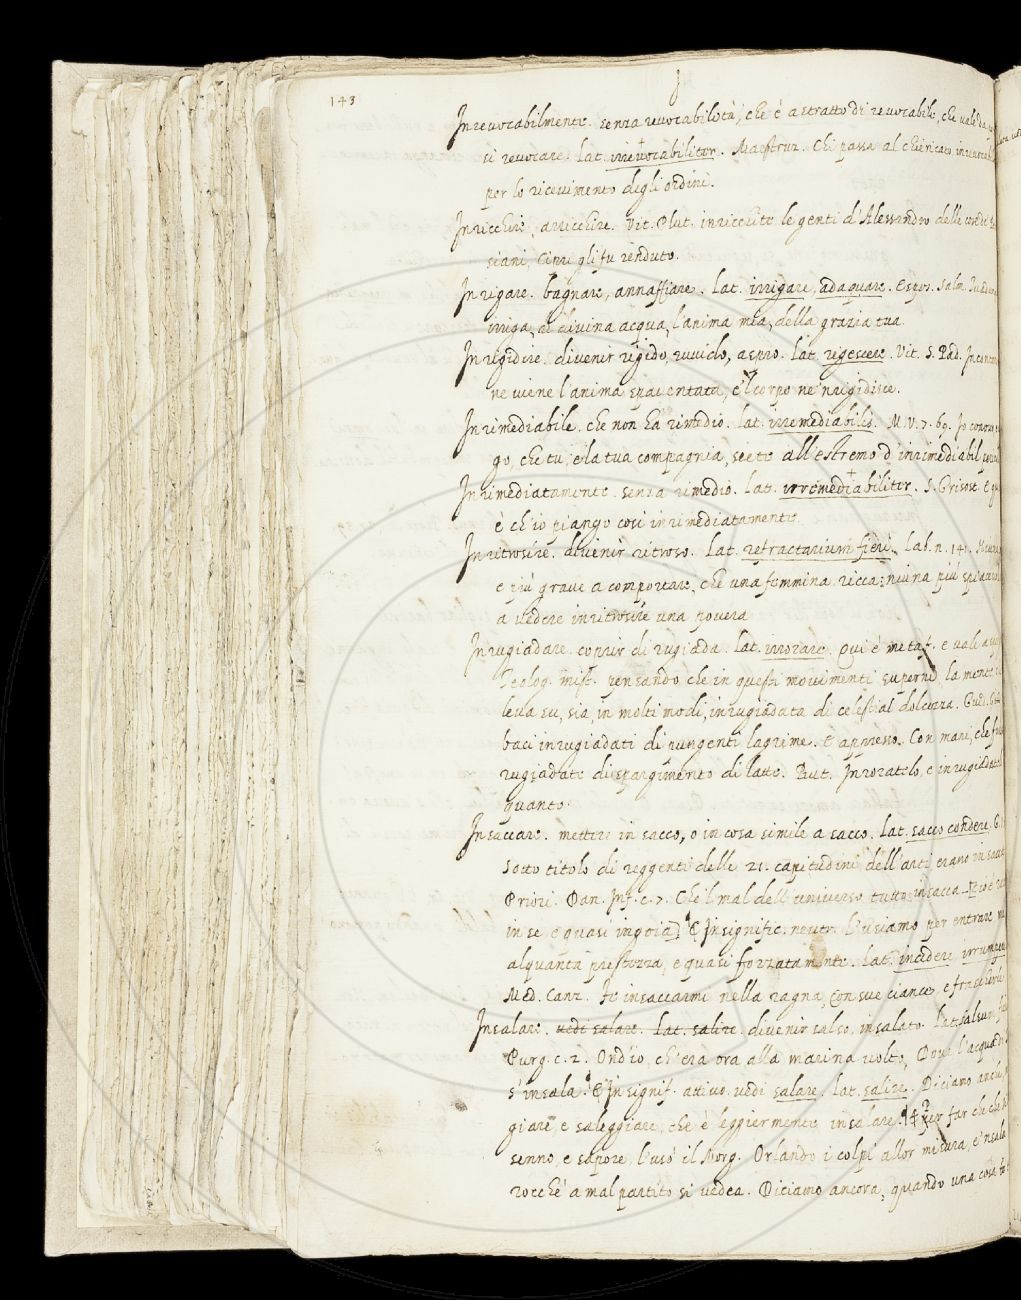 143
J
Inrevocabilmente. senza revocabilità, che è astratto di revocabile, che vale da
si revocare. Lat. irrevocabiliter. Maestruz. Chi passa al chericato
per lo ricevimento degli ordini.
Inricchire, arricchire. Vit. Plut. inricchite le genti d'Alessandro delle
siani, Cipri gli fu renduto.
Inrigare. bagnare, annaffiare. Lat. irrigare, adaquare. Espos. Salm.
irriga, di divina acqua, l'anima mia, della grazia tua.
Inrigidire. divenir rigido, ruvido, aspro. Lat. rigescere. Vit. S. Pad.
ne viene l'anima spaventata, e 'l corpo ne 'nrigidisce.
Inrimediabile. che non ha rimedio. Lat. irremediabilis. M.V. 7. 69. Io
go, che tu, e la tua compagnia, siete all'estremo d'inrimediabil
Inrimediatamente. senza rimedio. Lat. irremediabiliter. S. Grisost. E
è ch'io piango così inrimediatamente.
Inritrosire. divenir ritroso. Lat. refractarium fieri. Lab. n. 141.
e più grave a comportare, che una femmina ricca: niuna più
a vedere inritrosire una povera
Inrugiadare. coprir di rugiada. Lat. irrorare. Qui è metaf. e vale
Teolog. mist. pensando che in questi movimenti superni, la mente
leva su, sia, in molti modi, inrugiadata di celestial dolcezza. Guid.
baci inrugiadati di pungenti lagrime. E appresso. Con mani, che
rugiadate di spargimento di latte. But. Inroratelo, e inrugiadatelo
quanto.
Insaccare. mettere in sacco, o in cosa simile a sacco. Lat. sacco condere.
Sotto titolo di reggenti delle 21. capitudini dell'arti erano
Priori. Dan. Inf. c. 7. Che 'l mal dell'universo tutto insacca
in se, e quasi ingoia] E In signific. neutr. l'usiamo per entrare
alquanta prestezza, e quasi forzatamente. Lat. incidere, irrumpere
Med. Canz. Fe insaccarmi nella ragna, Con sue ciance e
Insalare. vedi salare. Lat. salire. divenir salso, insalato. Lat. salsum
Purg. c. 2. Ond'io, ch'era ora alla marina volto, Dove l'acqua
s'insala. E In signif. attivo. vedi salare. Lat. salire. Diciamo
giare, e saleggiare, che è leggiermente insalare. per far che che
senno, e sapore, l'usò il Morg. Orlando i colpi allor misura, e 'nsala
rocché a mal partito si vedea. Diciamo ancora, quando una cosa